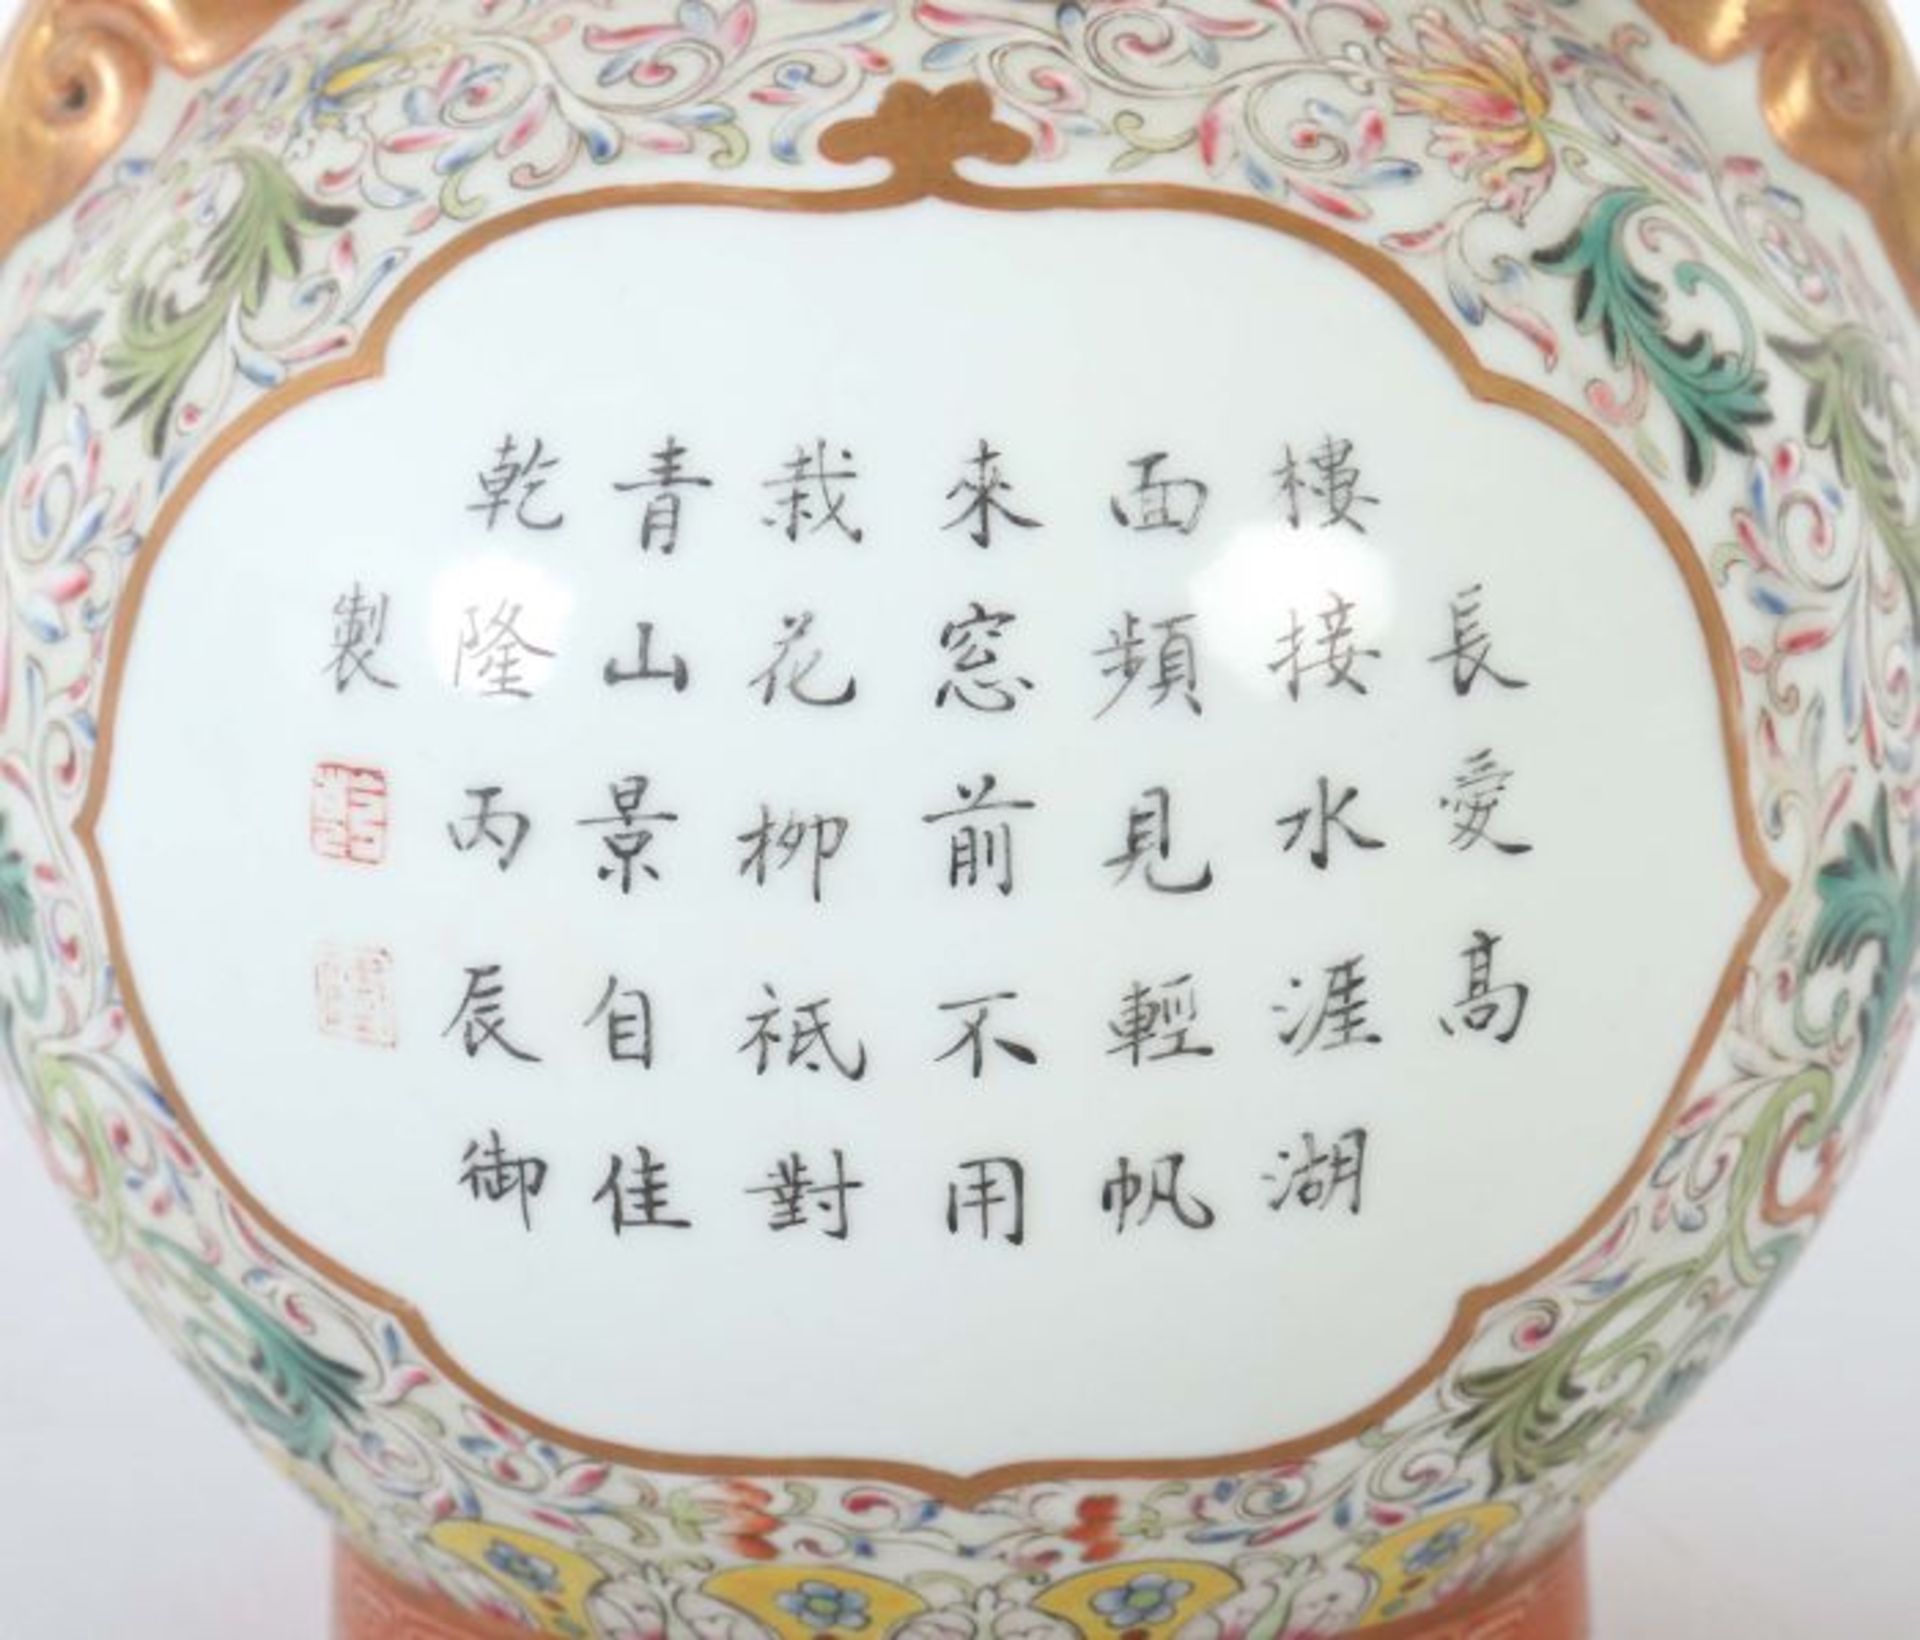 長愛高
樓接水涯湖
面頻見輕帆
來窓前不用
栽花柳祗對
青山景自佳
乾隆丙辰御
製